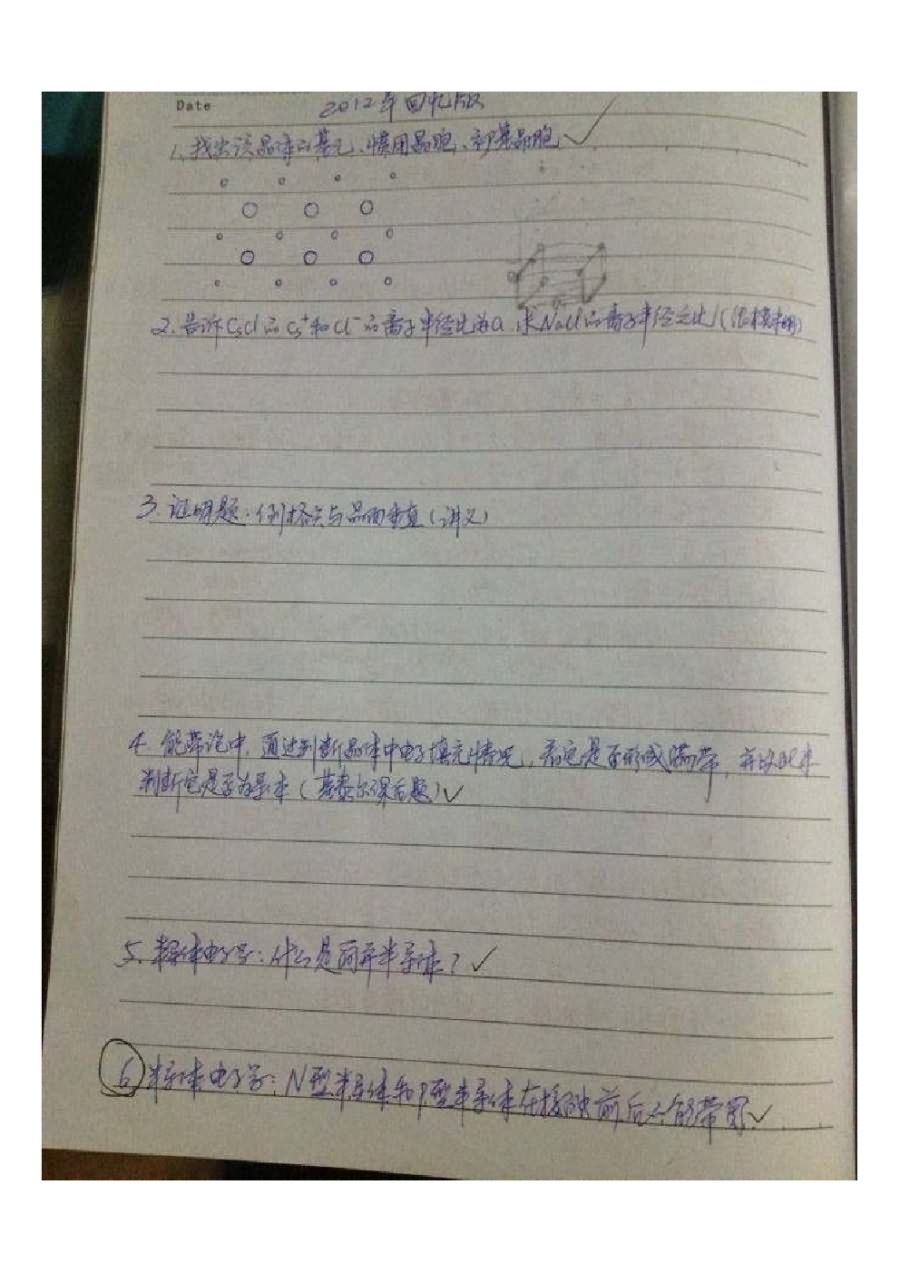 Date
2012年回忆版
1. 找出该晶体的基元、惯用晶胞、初基晶胞 ✓
2. 告诉CsCl的Cs⁺和Cl⁻的离子半径比为a,求NaCl的离子半径之比(
3. 证明题:倒格矢与晶面垂直(讲义)
4. 能带论中,通过判断晶体中电子填充情况,看它是否形成满带,并以此来
判断它是否为导体(基泰尔课后题)✓
5. 半导体电子学:什么是简并半导体?✓
6 半导体电子学:N型半导体和P型半导体在接触前后的能带图 ✓